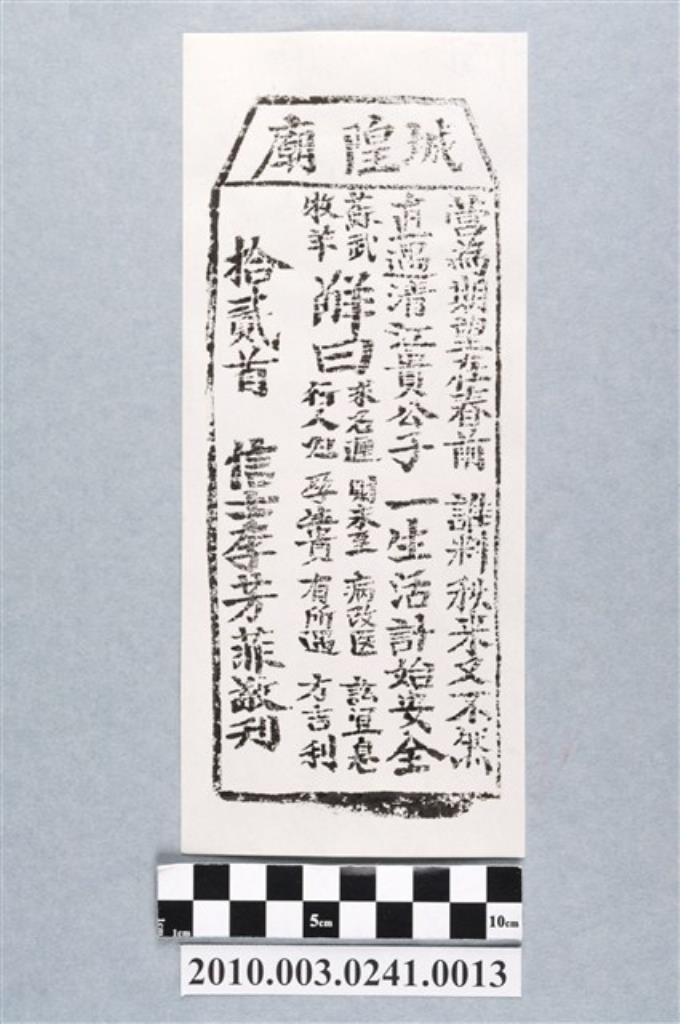 城隍廟
營為期望在春前 誰料秋來又不然
直遇清江貴公子 一生活計始安全
蘇武
牧羊
解曰
求名遲 財未至 病改医 訟宜息
行人 有所遇 方吉利
拾貳首 信士李芳菲敬刊
5cm
10cm
1cm
2010.003.0241.0013